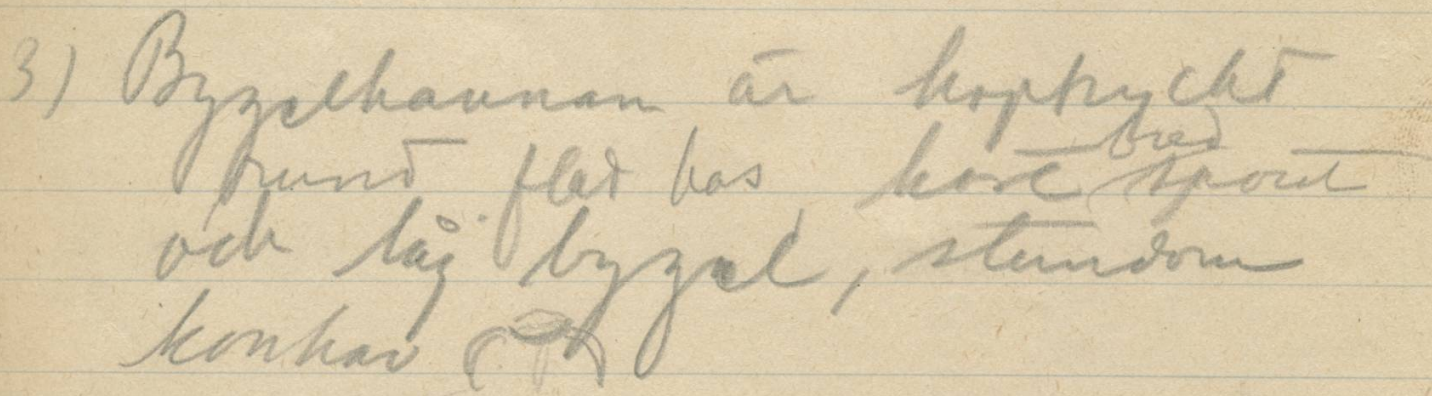 3) Bygelkannan är hoptryckt
rund flat bas kort bred spout
och låg bygel, stundom
konkav